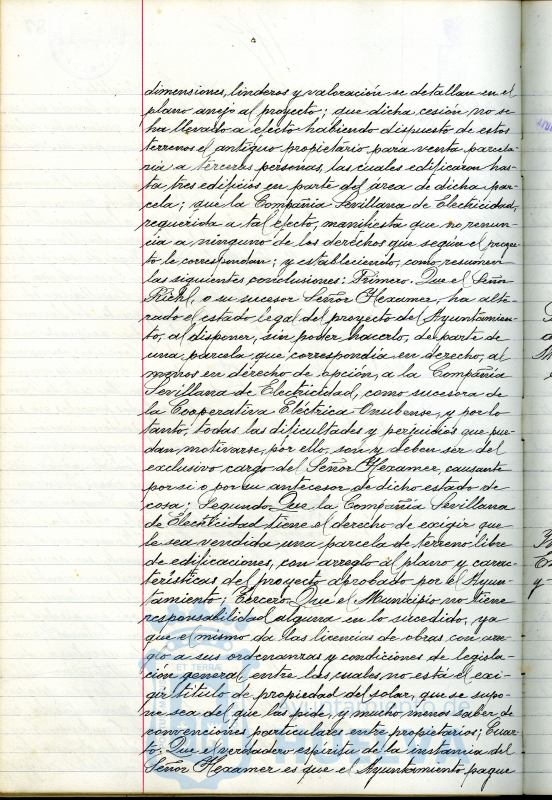 dimensiones, linderos y valoración se detallan en el
plano anejo al proyecto; que dicha cesión no se
ha llevado a efecto habiendo dispuesto de estos
terrenos el antiguo propietario, para venta parcela-
ria a terceras personas, las cuales edificaron has-
ta tres edificios en parte del área de dicha par-
cela; que la Compañía Sevillana de Electricidad,
requerida a tal efecto, manifiesta que no renun-
cia a ninguno de los derechos que según el proyec-
to le correspondan; y estableciendo, como resumen
las siguientes conclusiones: Primero. Que el Señor
Riehl, o su sucesor Señor Hexamer, ha alte-
rado el estado legal del proyecto del Ayuntamien-
to, al disponer, sin poder hacerlo, de parte de
una parcela que correspondia en derecho, al
menos en derecho de opción, a la Compañía
Sevillana de Electricidad, como sucesora de
la Cooperativa Eléctrica Onubense, y por lo
tanto, todas las dificultades y perjuicios que pue-
dan motivarse, por ello, son y deben ser del
exclusivo cargo del Señor Hexamer, causante
por si o por su antecesor de dicho estado de
cosa; Segundo Que la Compañía Sevillana
de Electricidad tiene el derecho de exigir que
le sea vendida una parcela de terreno libre
de edificaciones, con arreglo al plano y carac-
terísticas del proyecto aprobado por el Ayun-
tamiento; Tercero. Que el Municipio no tiene
responsabilidad alguna en lo sucedido, ya
que el mismo da las licencias de obras con arre-
glo a sus ordenanzas y condiciones de legisla-
ción general entre las cuales no está el exi-
gir titulo de propiedad del solar, que se supo-
ne sea del que las pide, y mucho menos saber de
convenciones particulares entre propietarios; Cuar-
to, Que el verdadero espíritu de la instancia del
Señor Hexamer es que el Ayuntamiento pague
ET TERRAE
Ayuntamiento de
HUELVA